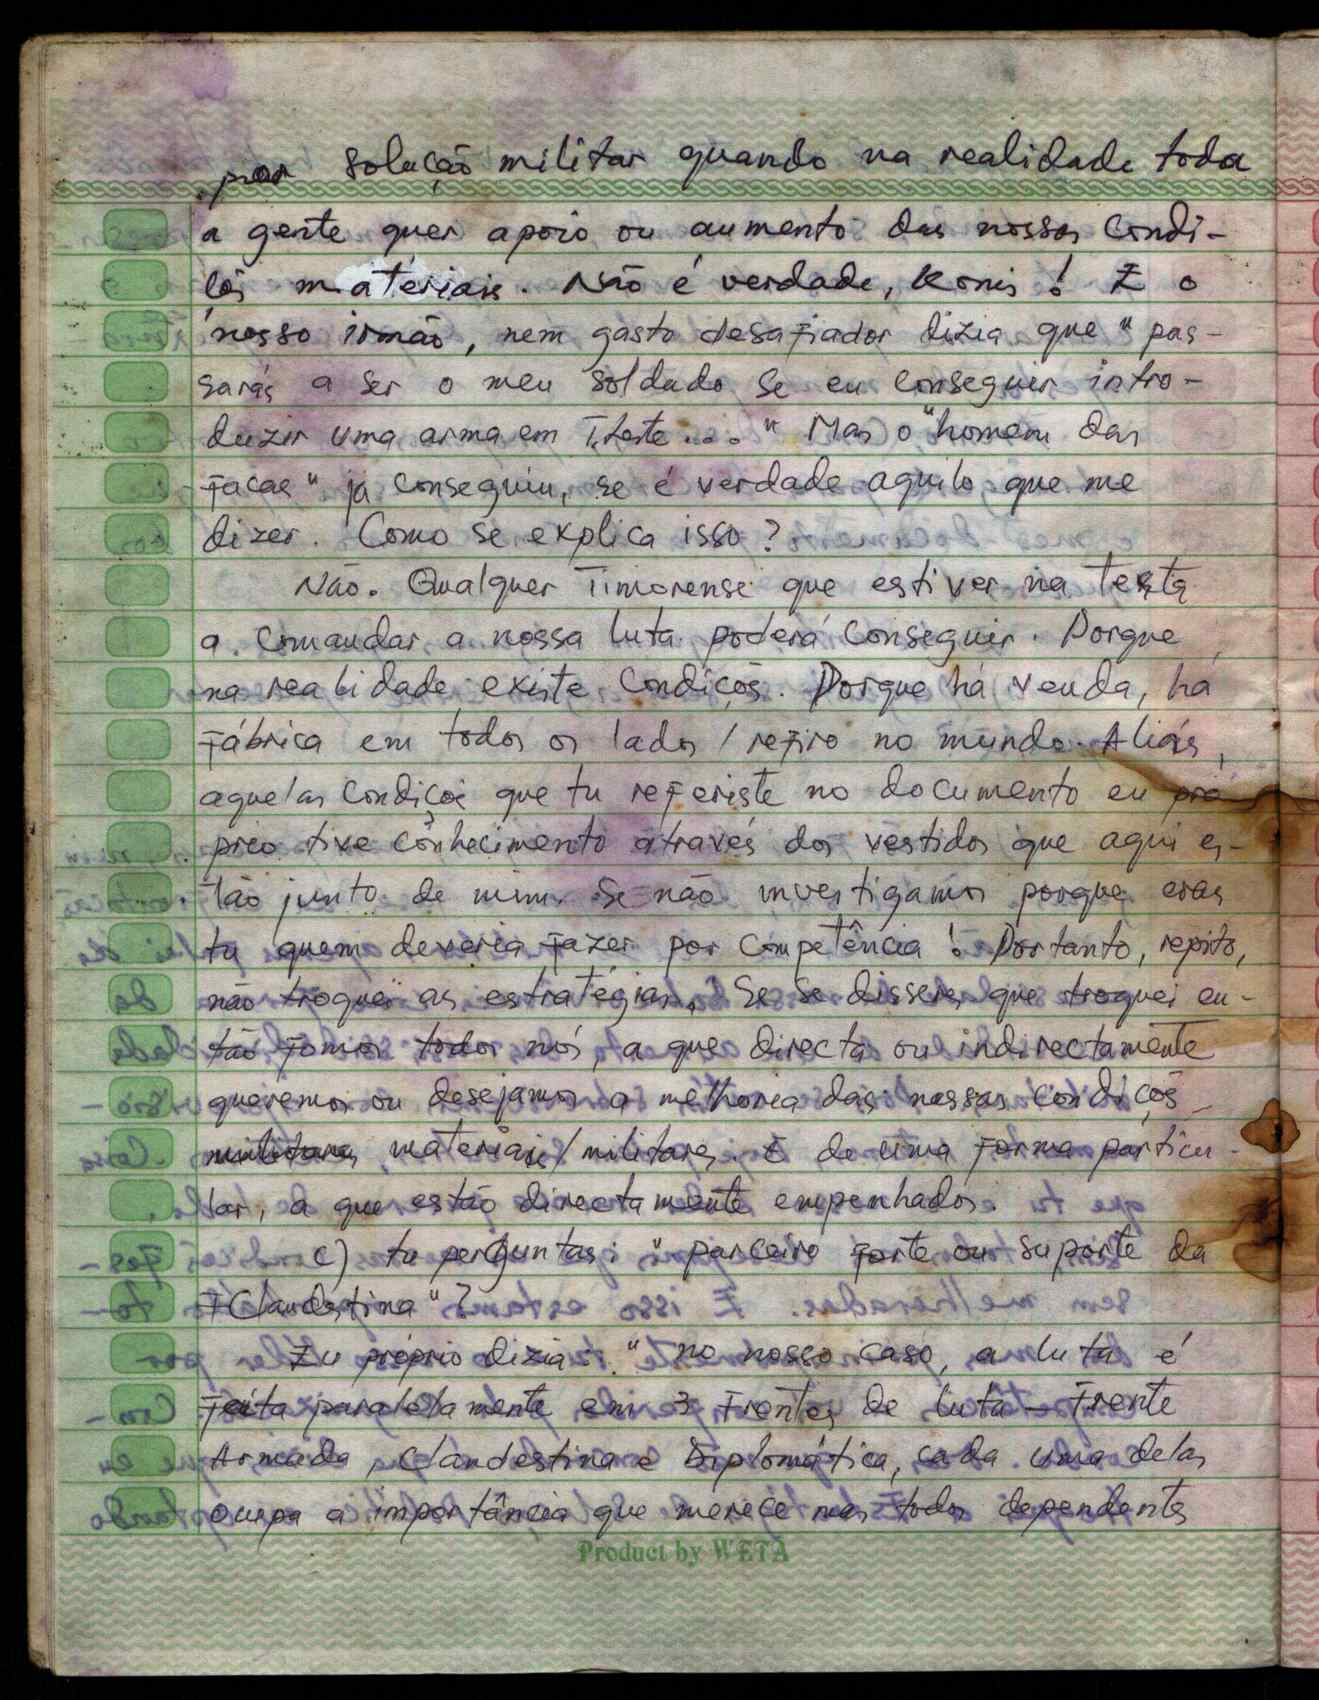 por solução militar quando na realidade toda
a gente quer apoio ou aumento das nossas condi-
ções materiais. Não é verdade, Konis! E o
nosso irmão, nem gasto desafiador dizia que "pas-
sarás a ser o meu soldado se eu conseguir intro-
duzir uma arma em T.Leste..." Mas o "homem das
facas" já conseguiu, se é verdade aquilo que me
dizer. Como se explica isso?
Não. Qualquer Timorense que estiver na testa
a comandar a nossa luta poderá conseguir. Porque
na realidade existe condições. Porque há venda, há
fábrica em todos os lados / refiro no mundo. Aliás,
aquelas condições que tu referiste no documento eu pró
prio tive conhecimento através dos vestidos que aqui es-
tão junto de mim. Se não investigamos porque eras
tu quem deveria fazer por competência! Portanto, repito,
não troquei as estratégias. Se se disseres que troquei en-
tão fomos todos nós, a que directa ou indirectamente
queremos ou desejamos a melhoria das nossas condições
militares materiais/militares. E de uma forma particu-
lar, a que estão directamente empenhados.
c) tu perguntas: "parceiro forte ou suporte da
F Clandestina"?
Eu próprio dizia: "no nosso caso, a luta é
feita paralelamente em 3 Frentes de luta - Frente
Armada, Clandestina e Diplomática, cada uma delas
ocupa a importância que merece mas todos dependentes
Product by WETA